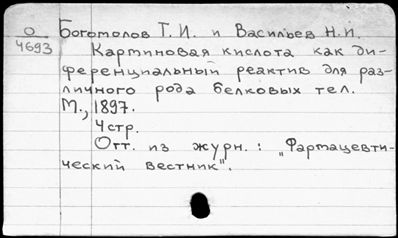 О Боготолов Т. И. и Васильев Н. И.
4693 Карминовая кислота как ди-
ференциальный реактив для раз-
личного рода белковых тел.
М., 1897.
4 стр.
Отт. из журн.: „Фармацевти-
ческий вестник".